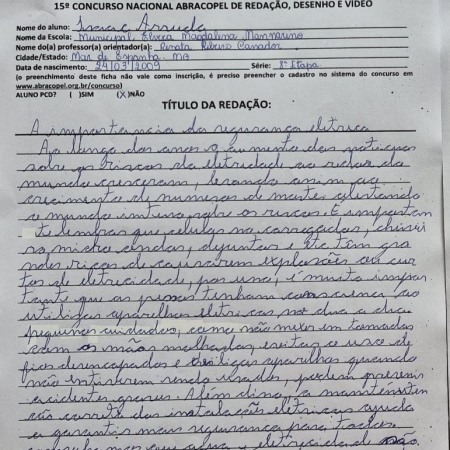 15º CONCURSO NACIONAL ABRACOPEL DE REDAÇÃO, DESENHO E VÍDEO
Nome do aluno: Isaac Arruda
Nome da Escola: Municipal Elvira Magdalena Mannarino
Nome do(a) professor(a) orientador(a): Renata Ribeiro
Cidade/Estado: Mar de Espanha. MG
Data de nascimento: 24/03/2009 Série: 8ª Etapa
(o preenchimento desta ficha não vale como inscrição, é preciso preencher o cadastro no sistema do concurso em
www.abracopel.org.br/concurso)
ALUNO PCD? ( )SIM (X)NÃO
TÍTULO DA REDAÇÃO:
A importancia da segurança elétrica
Ao longo dos anos o aumento das
sobre os riscos da eletricidade ao redor do
mundo cresceram, levando assim ao
crescimento de numeros de mortes alertando
o mundo sobre os riscos. É importan
te lembrar que celular no carregador, chuvei
ro, micro ondas, e etc têm gra
ndes riscos de causarem explosões ou cur
tos de eletricidade, por isso, é muito impor
tante que as pessoas tenham ao
utilizar aparelhos elétricos, no dia a dia
pequenos cuidados, como não mexer em tomadas
com as mãos molhadas, evitar o uso de
fios desencapados e desligar aparelhos quando
não estiverem sendo usados, podem prevenir
acidentes graves. Além disso, a manuten
ção correta das instalações elétricas ajuda
a garantir mais segurança para todos.
mas que agua e eletricidade não